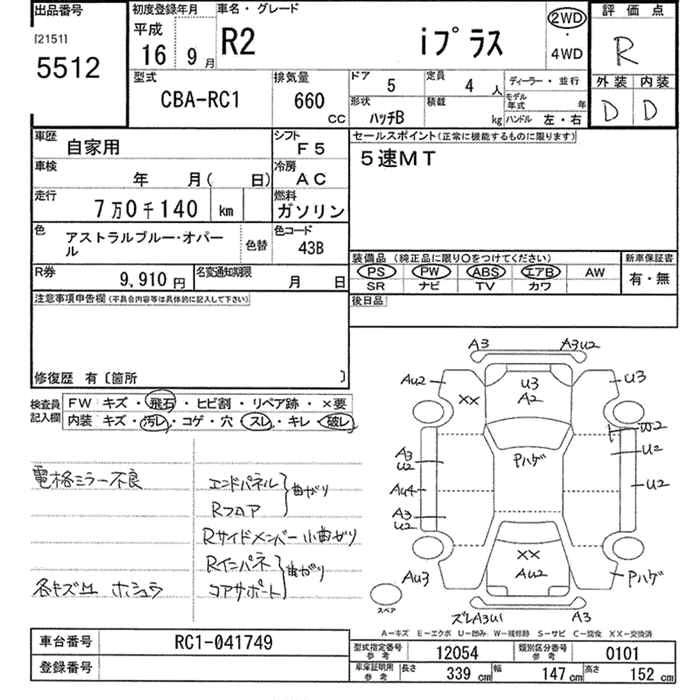 出品番号
[2151]
5512
初度登録年月
平成
16 9 月
車名・グレード
R2 iプラス
2WD
・
4WD
評価点
R
外装 内装
D D
型式
CBA-RC1
排気量
660
CC
ドア
5
定員
4 人
形状
ハッチB
積載
kg
ディーラー・並行
モデル年式 年
ハンドル 左・右
車歴
自家用
シフト
F5
車検
年 月( 日)
冷房
AC
走行
7万0千140 km
燃料
ガソリン
色
アストラルブルー・オパール
色替
色コード
43B
R券
9,910 円
名変通知期限
月 日
セールスポイント(正常に機能するものに限ります)
5速MT
装備品 (純正品に限り○をつけてください)
PS PW ABS エアB AW
SR ナビ TV カワ
新車保証書
有・無
後日品
注意事項申告欄(不具合内容等は具体的に記入して下さい)
修復歴 有〔箇所 〕
検査員記入欄
FW キズ・飛石・ヒビ割・リペア跡・×要
内装 キズ・汚レ・コゲ・穴・スレ・キレ・破レ
電格ミラー不良
各キズ凹 ホシュウ
エンドパネル
Rフロア
曲がり
Rサイドメンバー小曲がり
Rインパネ
コアサポート
曲がり
A3 A3U2
AU2 XX U3 A2 U3
W2
A3 U2 Pハゲ U2
AU4 U2
A3 U2
XX
AU3 AU2 Pハゲ
スペア
ズレA3U1 A3
A-キズ E-エクボ U-凹み W-補修跡 S-サビ C-腐食 XX-交換済
車台番号 RC1-041749
登録番号
型式指定番号 参考 12054
類別区分番号 参考 0101
車庫証明用 参考 長さ 339 cm 幅 147 cm 高さ 152 cm